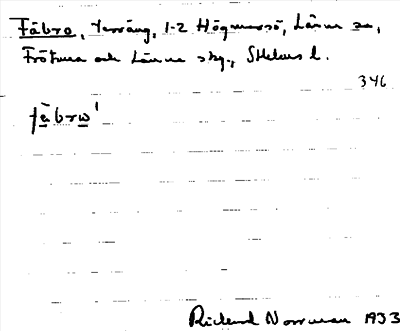 Fäbro, Terräng, 1-2 Högmarsö, Länna sn,
Frötuna och Länna skg., Sthlms l.
346
fä̀brω'
Rickard Norrman 1933